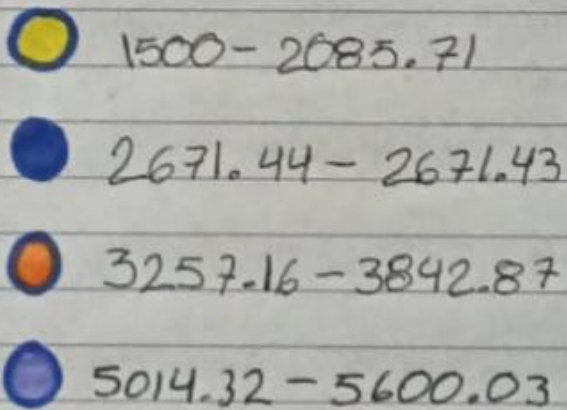 1500 - 2085.71
2671.44 - 2671.43
3257.16 - 3842.87
5014.32 - 5600.03